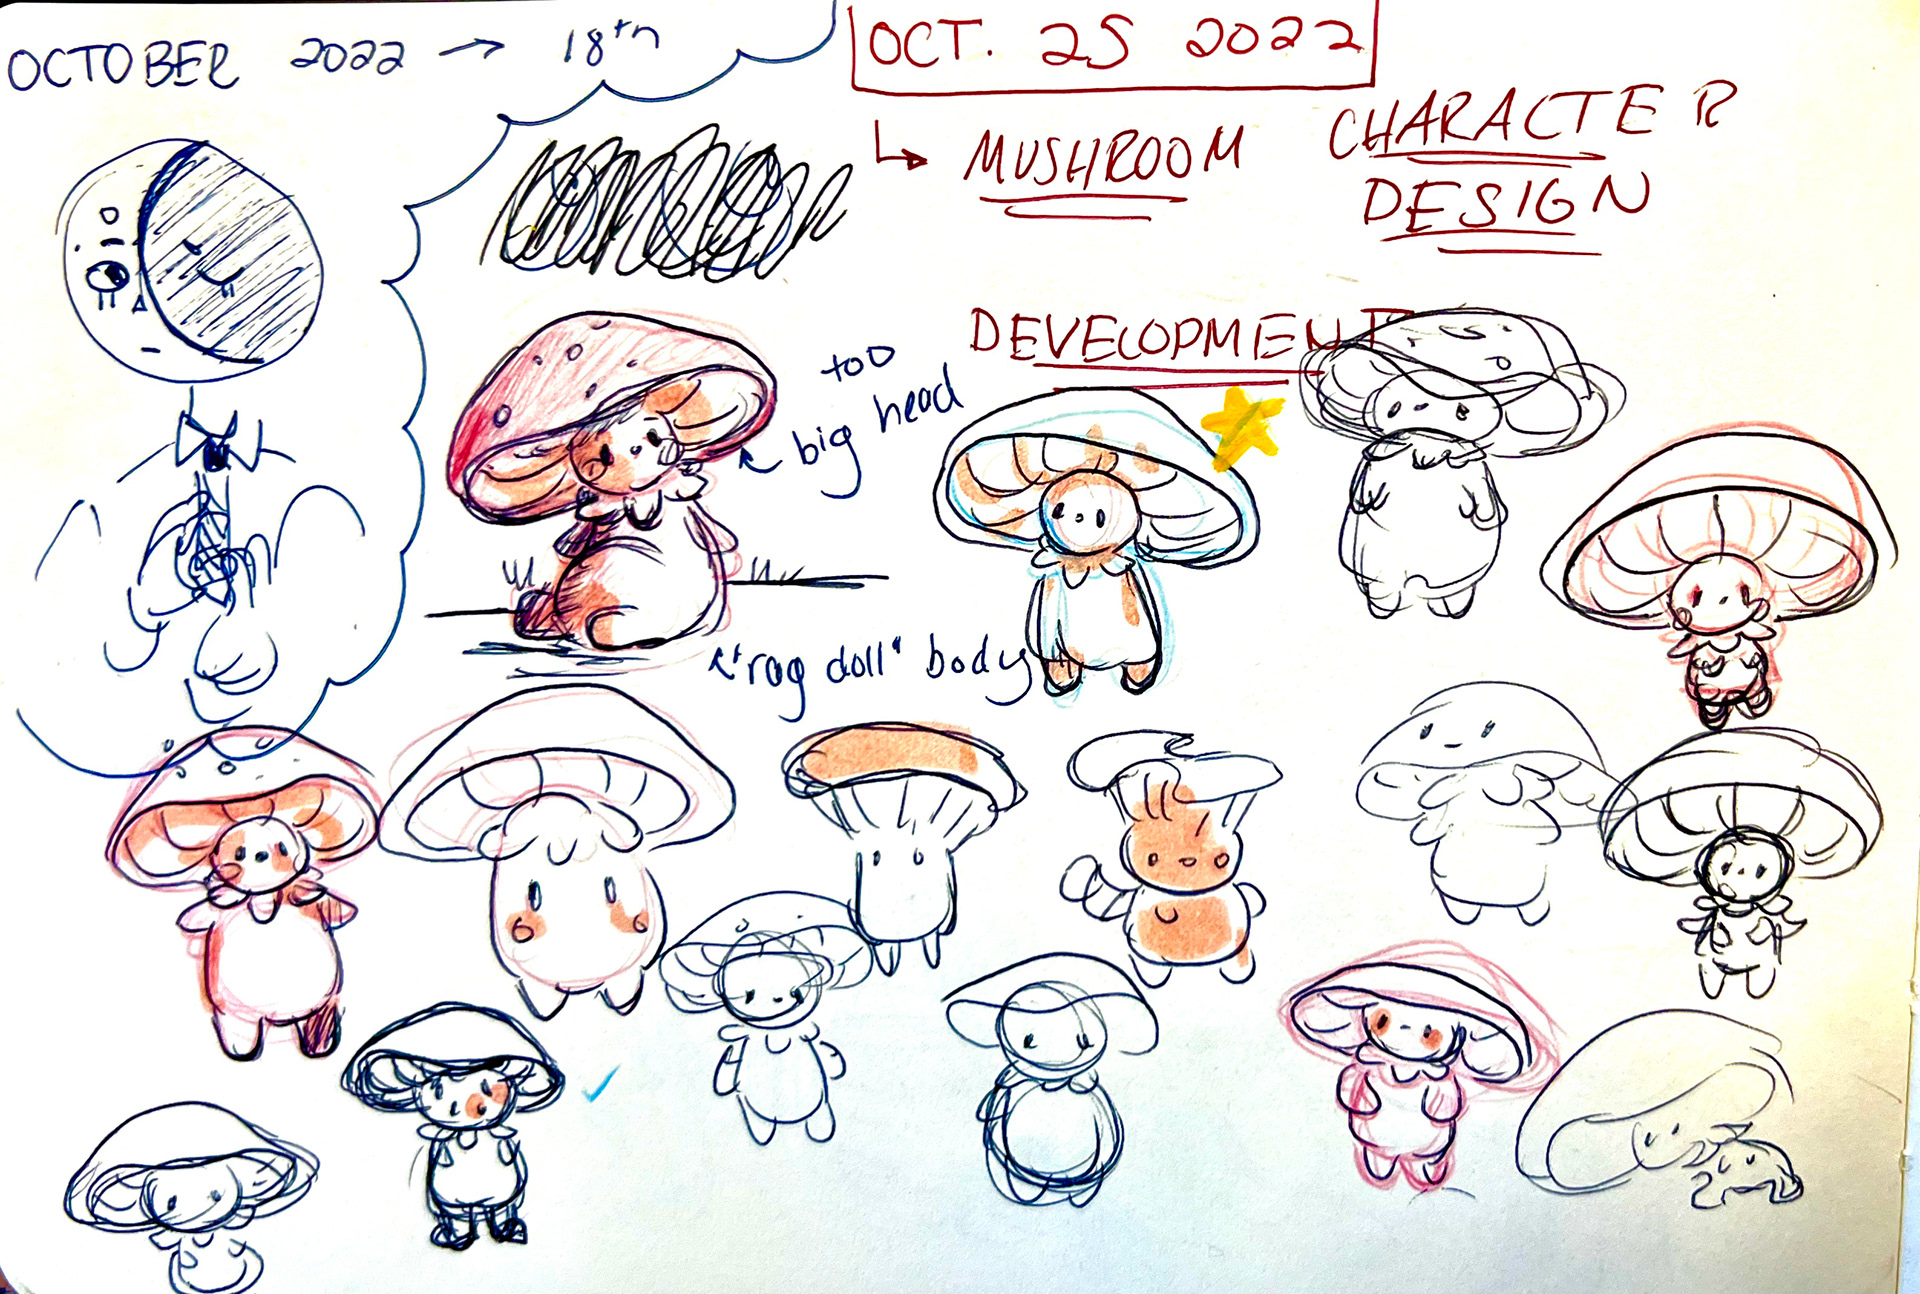 OCTOBER 2022 → 18th
OCT. 25 2022
↳ MUSHROOM
CHARACTER
DESIGN
DEVELOPMENT
too
big head
"rag doll" body